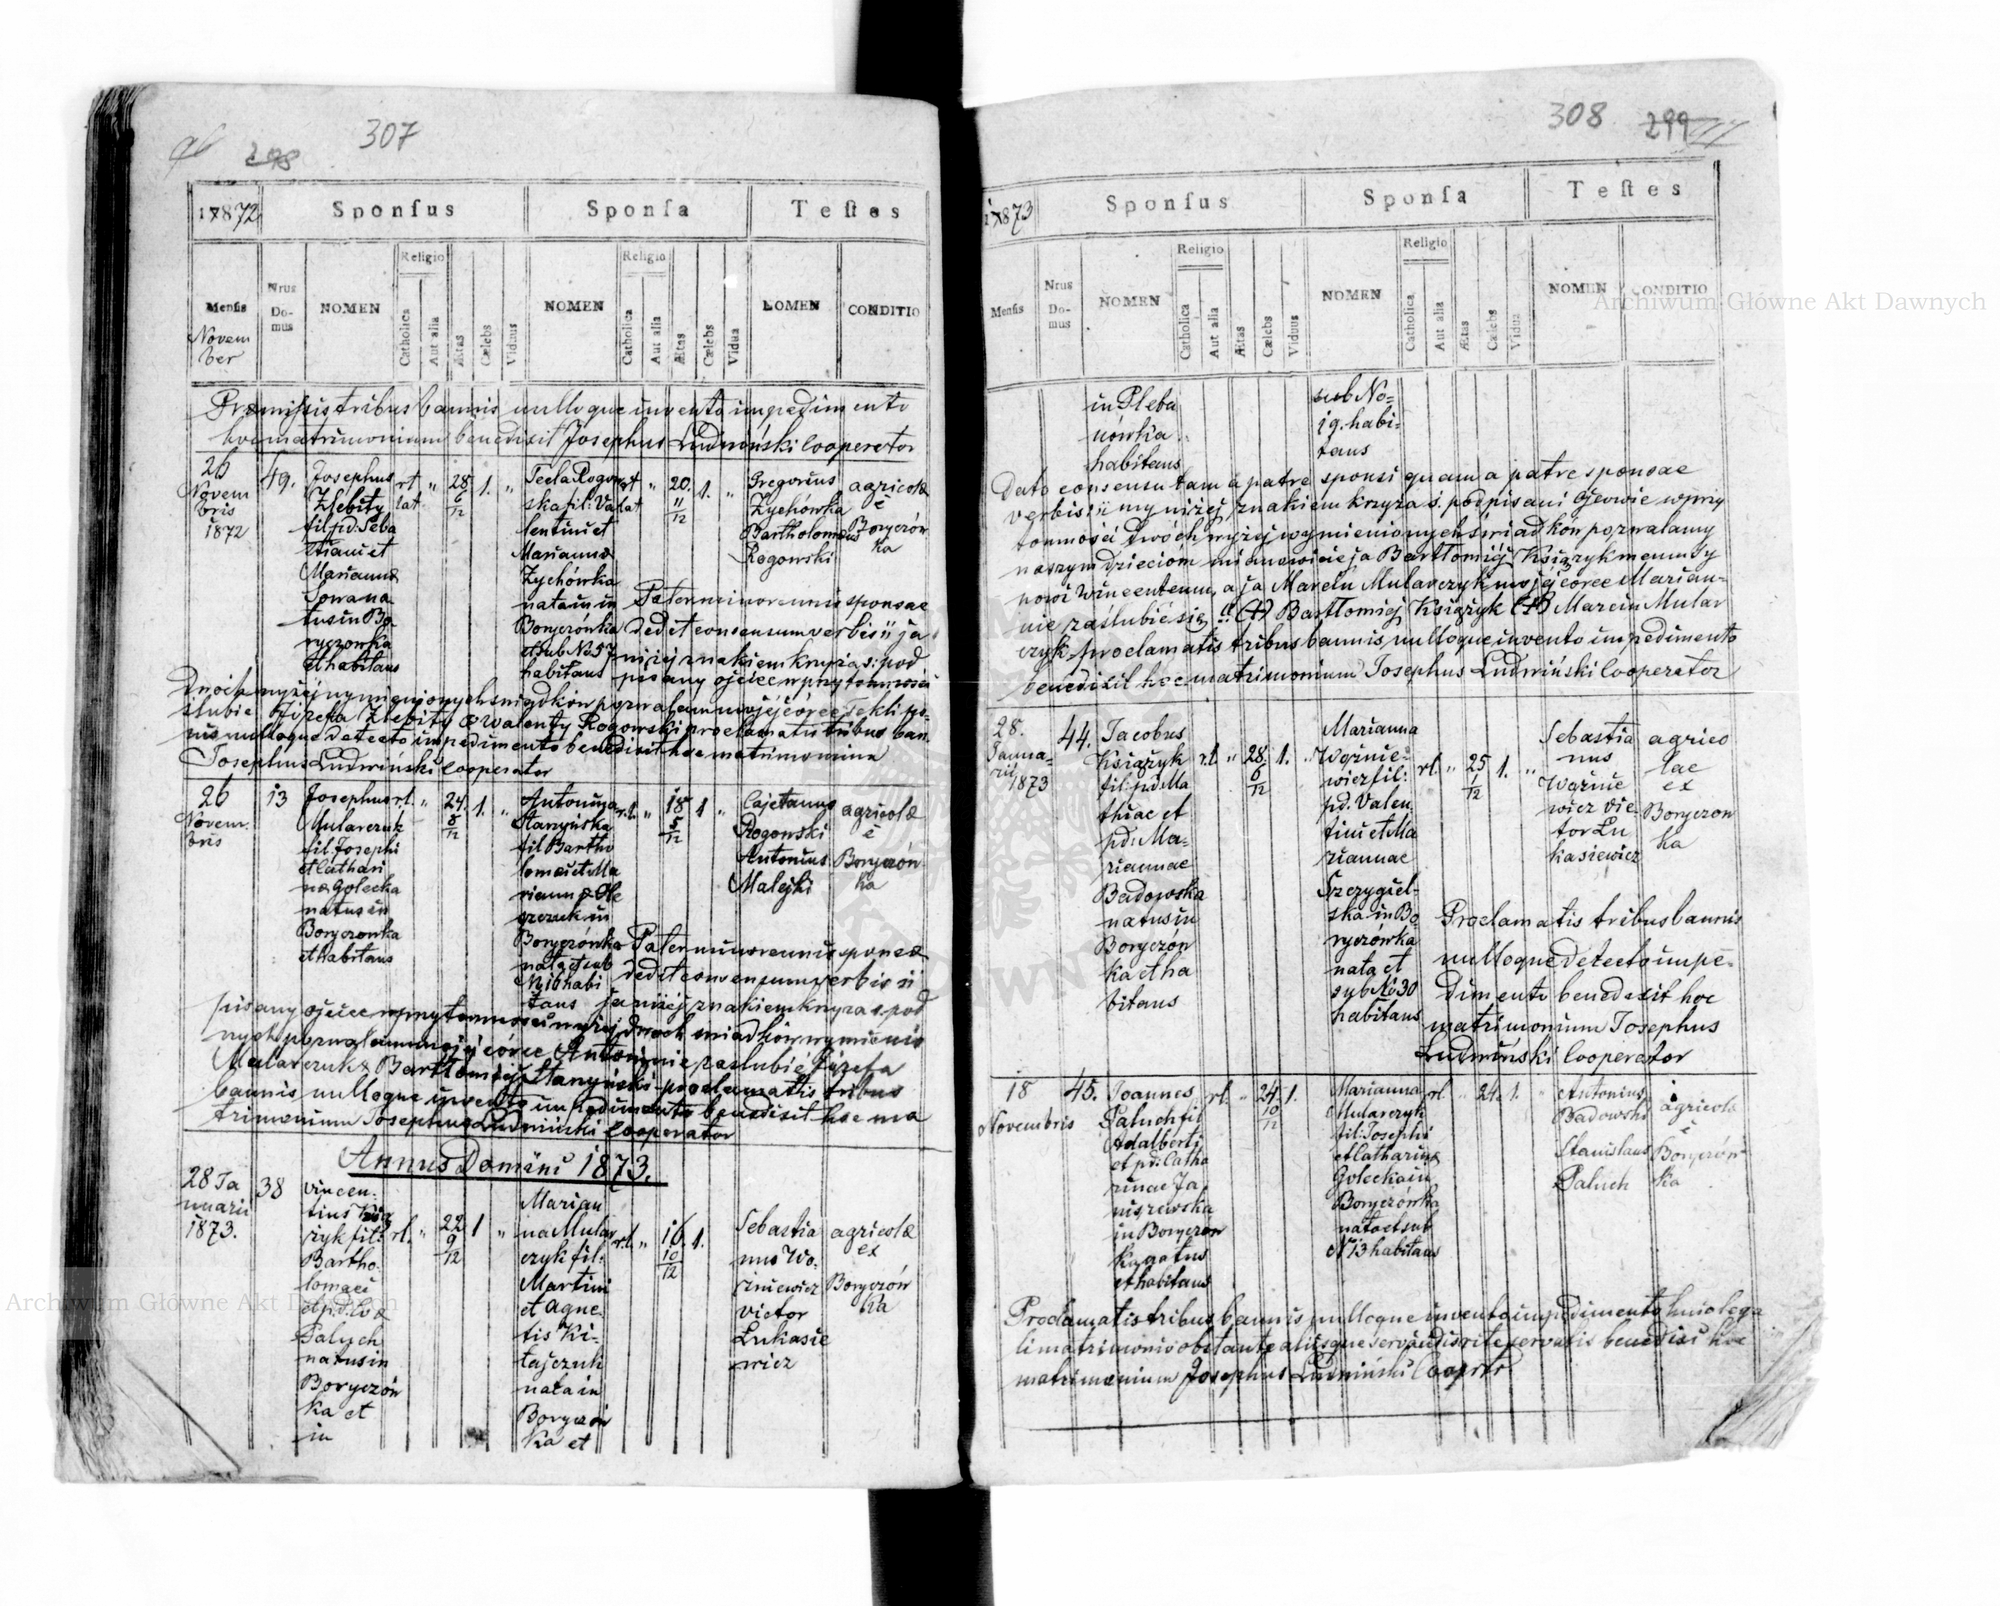 307
298
1872
Sponsus
Sponsa
Testes
Mensis
Novem
ber
Nrus
Do-
mus
NOMEN
Religio
Catholica
Aut alia
Ætas
Cælebs
Viduus
NOMEN
Religio
Catholica
Aut alia
Ætas
Cælebs
Vidua
NOMEN
CONDITIO
Præmissis tribus bannis nulloque invento impedimento
hoc matrimonium benedixit Josephus Ludwiński Cooperator
26
Novem
bris
1872
49.
Josephus
Zlebity
fil: p.d. Seba
stiani et
Mariannæ
Sowa na
tus in Bo
ryczowka
et habitans
rt
lat
"
28
6
12
1.
"
Tecla Rogow
ska fil: Va
lentini et
Mariannæ
Zychówka
nata in in
Boryczówka
et sub No 57
habitans
rt
lat
"
20.
11
12
1.
"
Gregorius
Zychówka
Bartholomæus
Rogowski
agricolæ
è
Boryczów
ka
Pater minorennis sponsae
dedit consensum verbis: ja
niżej znakiem krzyża s: pod
pisany ojciec w przytomności
dwóch wyżej wymienionych świadków pozwalam mojéj córce Tekli po-
ślubic Józefa Zlebity Walenty Rogowski proclamatis tribus ban
nis nulloque detecto impedimento benedixit hoc matrimonium
Josephus Ludwiński Cooperator
26
Novem
bris
13
Josephus
Mularczuk
fil: Josephi
et Cathari
næ Golecka
natus in
Boryczowka
et habitans
rl.
"
24.
8
12
1.
"
Antonina
Stanyńska
fil Bartho
lomæi et Ma
riannæ Ole
szczuk in
Boryczówka
nata et sub
N 10 habi
tans
rl.
"
18
5
12
1
"
Cajetanus
Rogowski
Antonius
Malejki
agricolæ
è
Boryczów
ka
Pater minorennis sponsæ
dedit consensum verbis
ja niżej znakiem krzyża s. pod
pisany ojciec w przytomności wyżej dwoch swiadków wymienio
nych pozwalam mojéj córce Antoninie zaslubić Józefa
Mularczuk Bartłomiéj Stanyński proclamatis tribus
bannis nulloque invento impedimento benedixit hoc ma
trimonium Josephus Ludwiński Cooperator
Annus Domini 1873.
28 Ja
nuarii
1873.
38
Vincen-
tiusKsią
żyk fil:
Bartho
lomæi
et p.d. Evæ
Palych
natus in
Boryczów
ka et
in
rl.
"
22
9
12
1
"
Marian
na Mular
czyk fil:
Martini
et Agne
tis Ki-
tajczuk
nata in
Boryczów
ka et
rl.
"
16
10
12
1.
Sebastia
nus Wo-
zniewicz
Victor
Lukasie
wicz
agricolæ
ex
Boryczów
ka
308
299
1873
Sponsus
Sponsa
Testes
Mensis
Nrus
Do-
mus
NOMEN
Religio
Catholica
Aut alia
Ætas
Cælebs
Viduus
NOMEN
Religio
Catholica
Aut alia
Ætas
Cælebs
Vidua
NOMEN
CONDITIO
in Pleba
nówka
habitans
sub No=
19. habi-
tans
Dato consensu tam a patre sponsi quam a patre sponsae
verbis: my niżej znakiem krzyża ś. podpisani Ojcowie w przy
tomności dwóch wyżej wymienionych świadków pozwalamy
naszym dzieciom mianowicie ja Bartłomiéj Książyk memu sy
nowi Wincentemu, a ja Marcin Mularczyk mojéj córce Marian-
nie zaślubić się !! (+) Bartłomiej Książyk (+) Marcin Mular
czyk proclamatis tribus bannis, nulloque invento impedimento
benedixit hoc matrimonium Josephus Ludwiński Cooperator
28.
Janua-
rii
1873
44.
Jacobus
Książyk
fil: p.d. Ma
thiae et
p.d. Ma-
riannae
Badowska
natus in
Boryczów
ka et ha
bitans
rl.
"
28.
6
12
1.
"
Marianna
Woźnie-
wicz fil:
p.d. Valen
tini et Ma
riannae
Szczygiel-
ska in Bo-
ryczówka
nata et
sub No 30
habitans
rl.
"
25
1
12
1.
"
Sebastia
nus
Woźnie
wicz Vic-
tor Lu
kasiewicz
agrico
lae
ex
Boryczow
ka
Proclamatis tribus bannis
nulloque detecto impe-
dimento benedixit hoc
matrimonium Josephus
Ludwiński Cooperator
18
Novembris
45.
Joannes
Paluch fil
Adalberti
et p.d. Catha
rinae Ja
niszewska
in Boryczow
ka natus
et habitans
rl.
"
24
10
12
1.
Marianna
Mularczyk
fil: Josephi
et Catharinæ
Golecka in
Boryczówka
nata et sub
N 13 habitans
rl
"
24.
1.
"
Antonius
Badowski
Stanislaus
Paluch
agricolæ
è
Boryczów
ka
Proclamatis tribus bannis nulloque invento impedimento huic lega
li matrimonio obstante aliisque servandis rite servatis benedixi hoc
matrimonium Josephus Ludwiński Cooprtr
Archiwum Główne Akt Dawnych
Archiwum Główne Akt Dawnych